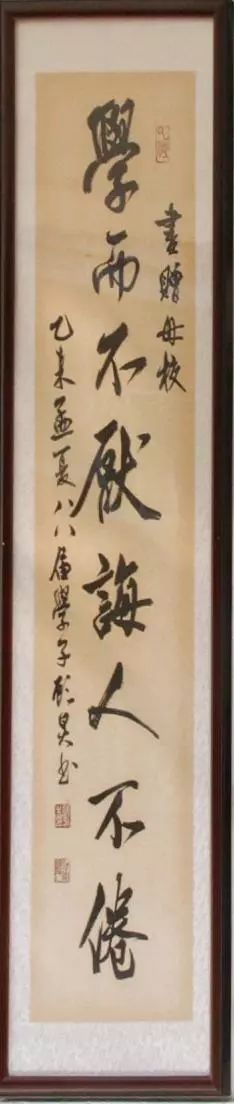 書贈母校
學而不厭誨人不倦
乙未孟夏八八届學子昊书